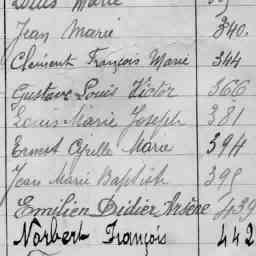 Louis Marie
Jean Marie 340.
Clément François Marie 344
Gustave Louis Victor 366
Louis Marie Joseph 381
Ernest Cyrille Marie 394
Jean Marie Baptiste 395
Emilien Didier Arsène 439
Norbert François 442